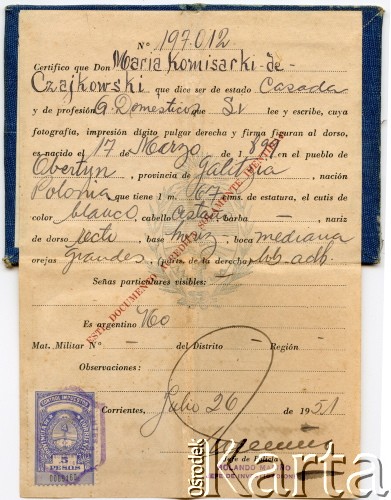 Nº 197.012
Certifico que Don Maria Komisarki-de-
Czajkowski que dice ser de estado Casada
y de profesión Q. Domesticos que Si
lee y escribe, cuya
fotografía, impresión dígito pulgar derecha y firma figuran al dorso,
es nacido el 17 de Marzo de 189 en el pueblo de
Obertyn, provincia de Galitzia, nación
Polonia que tiene 1 m. 67 ctms. de estatura, el cutis de
color blanco, cabello Cast. barba — , nariz
de dorso recto, base horiz, boca mediana
orejas grandes, (partic. de la derecha) lób-adh.
ESTE DOCUMENTO ACREDITA SOLAMENTE IDENTIDAD
Señas particulares visibles:
Es argentino No
Mat. Militar Nº — del Distrito — Región —
Observaciones:
Corrientes, Julio 26 de 1951
Jefe de Policía
5
PESOS
Ośrodek
Karta